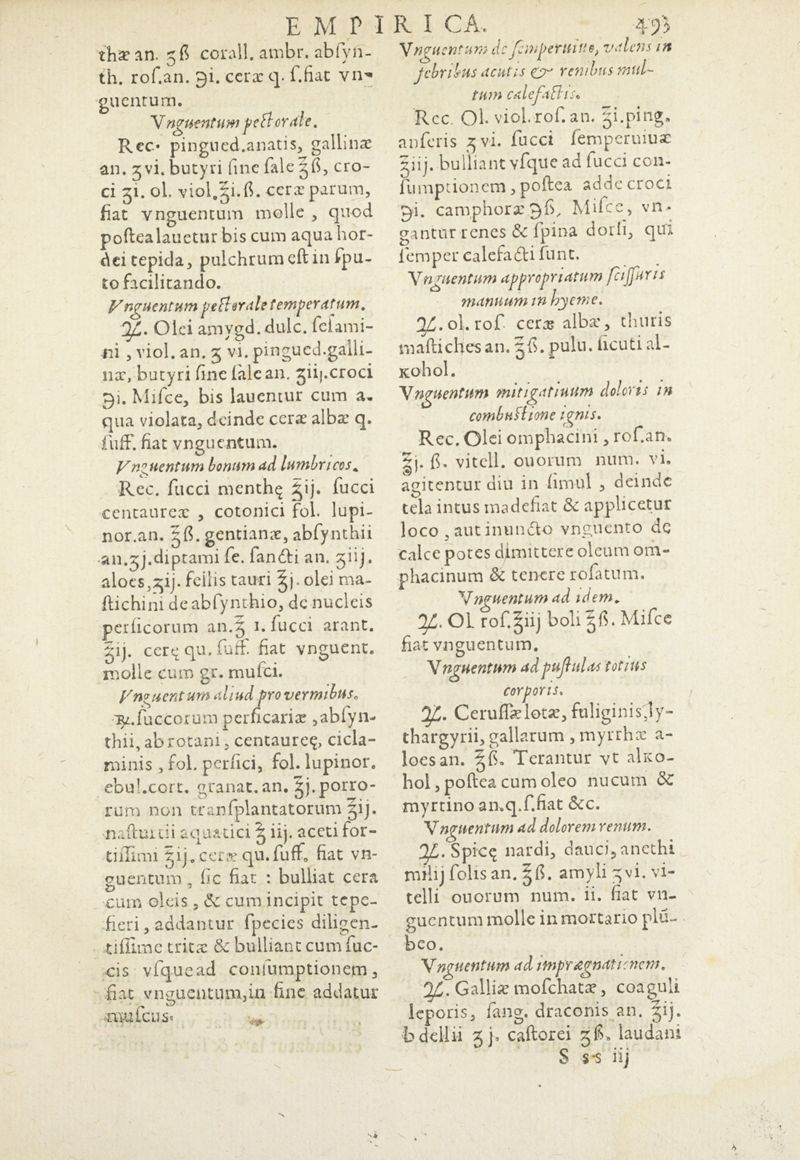 EMPIRICA. 493
thæ an. ʒß corall. ambr. abſyn-
th. roſ.an. ℈i. ceræ q. ſ.fiat vn-
guentum.
Vnguentum pectorale.
Rec. pingued.anatis, gallinæ
an. ʒvi. butyri ſine ſale ℥ß, cro-
ci ʒi. ol. viol.℥i.ß. ceræ parum,
fiat vnguentum molle , quod
poſtealauetur bis cum aqua hor-
dei tepida, pulchrum eſt in ſpu-
to facilitando.
Vnguentum pectorale temperatum.
♃. Olei amygd. dulc. ſeſami-
ni , viol. an. ʒ vi. pingued.galli-
næ, butyri ſine ſale an. ʒiij.croci
℈i. Miſce, bis lauentur cum a-
qua violata, deinde ceræ albæ q.
ſuff. fiat vnguentum.
Vnguentum bonum ad lumbricos.
Rec. ſucci menthę ℥ij. ſucci
centaureæ , cotonici fol. lupi-
nor.an. ℥ß. gentianæ, abſynthii
an.ʒj.diptami ſe. ſancti an. ʒiij.
aloes,ʒij. fellis tauri ℥j. olei ma-
ſtichini de abſynthio, de nucleis
perſicorum an.℥ 1. ſucci arant.
℥ij. cerę qu. ſuff. fiat vnguent.
molle cum gr. muſci.
Vnguentum aliud pro vermibus.
℞.ſuccorum perſicariæ ,abſyn-
thii, abrotani , centaureę, cicla-
minis , fol. perſici, fol. lupinor.
ebul.cort. granat. an. ℥j. porro-
rum non tranſplantatorum ℥ij.
naſturtii aquatici ℥ iij. aceti for-
tiſſimi ℥ij. ceræ qu. ſuff. fiat vn-
guentum , ſic fiat : bulliat cera
cum oleis , & cum incipit tepe-
fieri , addantur ſpecies diligen-
tiſſime tritæ & bulliant cum ſuc-
cis vſquead conſumptionem ,
fiat vnguentum,in fine addatur
muſcus.
Vnguentum de ſemperuiuo, valens in
febribus acutis & renibus mul-
tum calefactis.
Rec. Ol. viol. roſ. an. ℥i.ping.
anſeris ʒvi. ſucci ſemperuiuæ
℥iij. bulliant vſque ad ſucci con-
ſumptionem , poſtea adde croci
℈i. camphoræ ℈ß, Miſce, vn-
gantur renes & ſpina dorſi, qui
ſemper calefacti ſunt.
Vnguentum appropriatum ſciſſuris
manuum in hyeme.
♃. ol. roſ. ceræ albæ, thuris
maſtiches an. ℥ß. pulu. ſicuti al-
kohol.
Vnguentum mitigatiuum doloris in
combuſtione ignis.
Rec. Olei omphacini , roſ.an.
℥j. ß. vitell. ouorum num. vi.
agitentur diu in ſimul , deinde
tela intus madefiat & applicetur
loco , aut inuncto vnguento de
calce potes dimittere oleum om-
phacinum & tenere roſatum.
Vnguentum ad idem.
♃. Ol roſ.℥iij boli ℥ß. Miſce
fiat vnguentum.
Vnguentum ad puſtulas totius
corporis.
♃. Ceruſſæ lotæ, fuliginis,ly-
thargyrii, gallarum , myrrhæ a-
loes an. ℥ß. Terantur vt alko-
hol , poſtea cum oleo nucum &
myrtino an.q.ſ.fiat &c.
Vnguentum ad dolorem renum.
♃. Spicę nardi, dauci, anethi
milij ſolis an. ℥ß. amyli ʒvi. vi-
telli ouorum num. ii. fiat vn-
guentum molle in mortario plū-
beo.
Vnguentum ad imprægnationem.
♃. Galliæ moſchatæ, coaguli
leporis, ſang. draconis an. ℥ij.
bdellii ʒ j. caſtorei ʒß. laudani
S ss iij